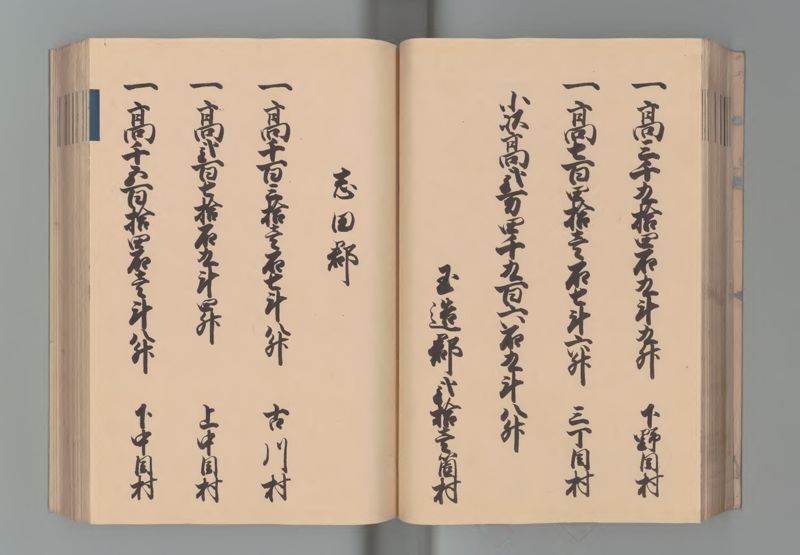 一高三千九拾四石九斗九升 下野目村
一高七百四拾壱石七斗六升 三丁目村
小以高弐万四千九百六石九斗八升
玉造郡弐拾壱箇村
志田郡
一高千百三拾壱石七斗八升 古川村
一高弐百七拾石九斗四升 上中目村
一高千五百拾四石壱斗八升 下中目村